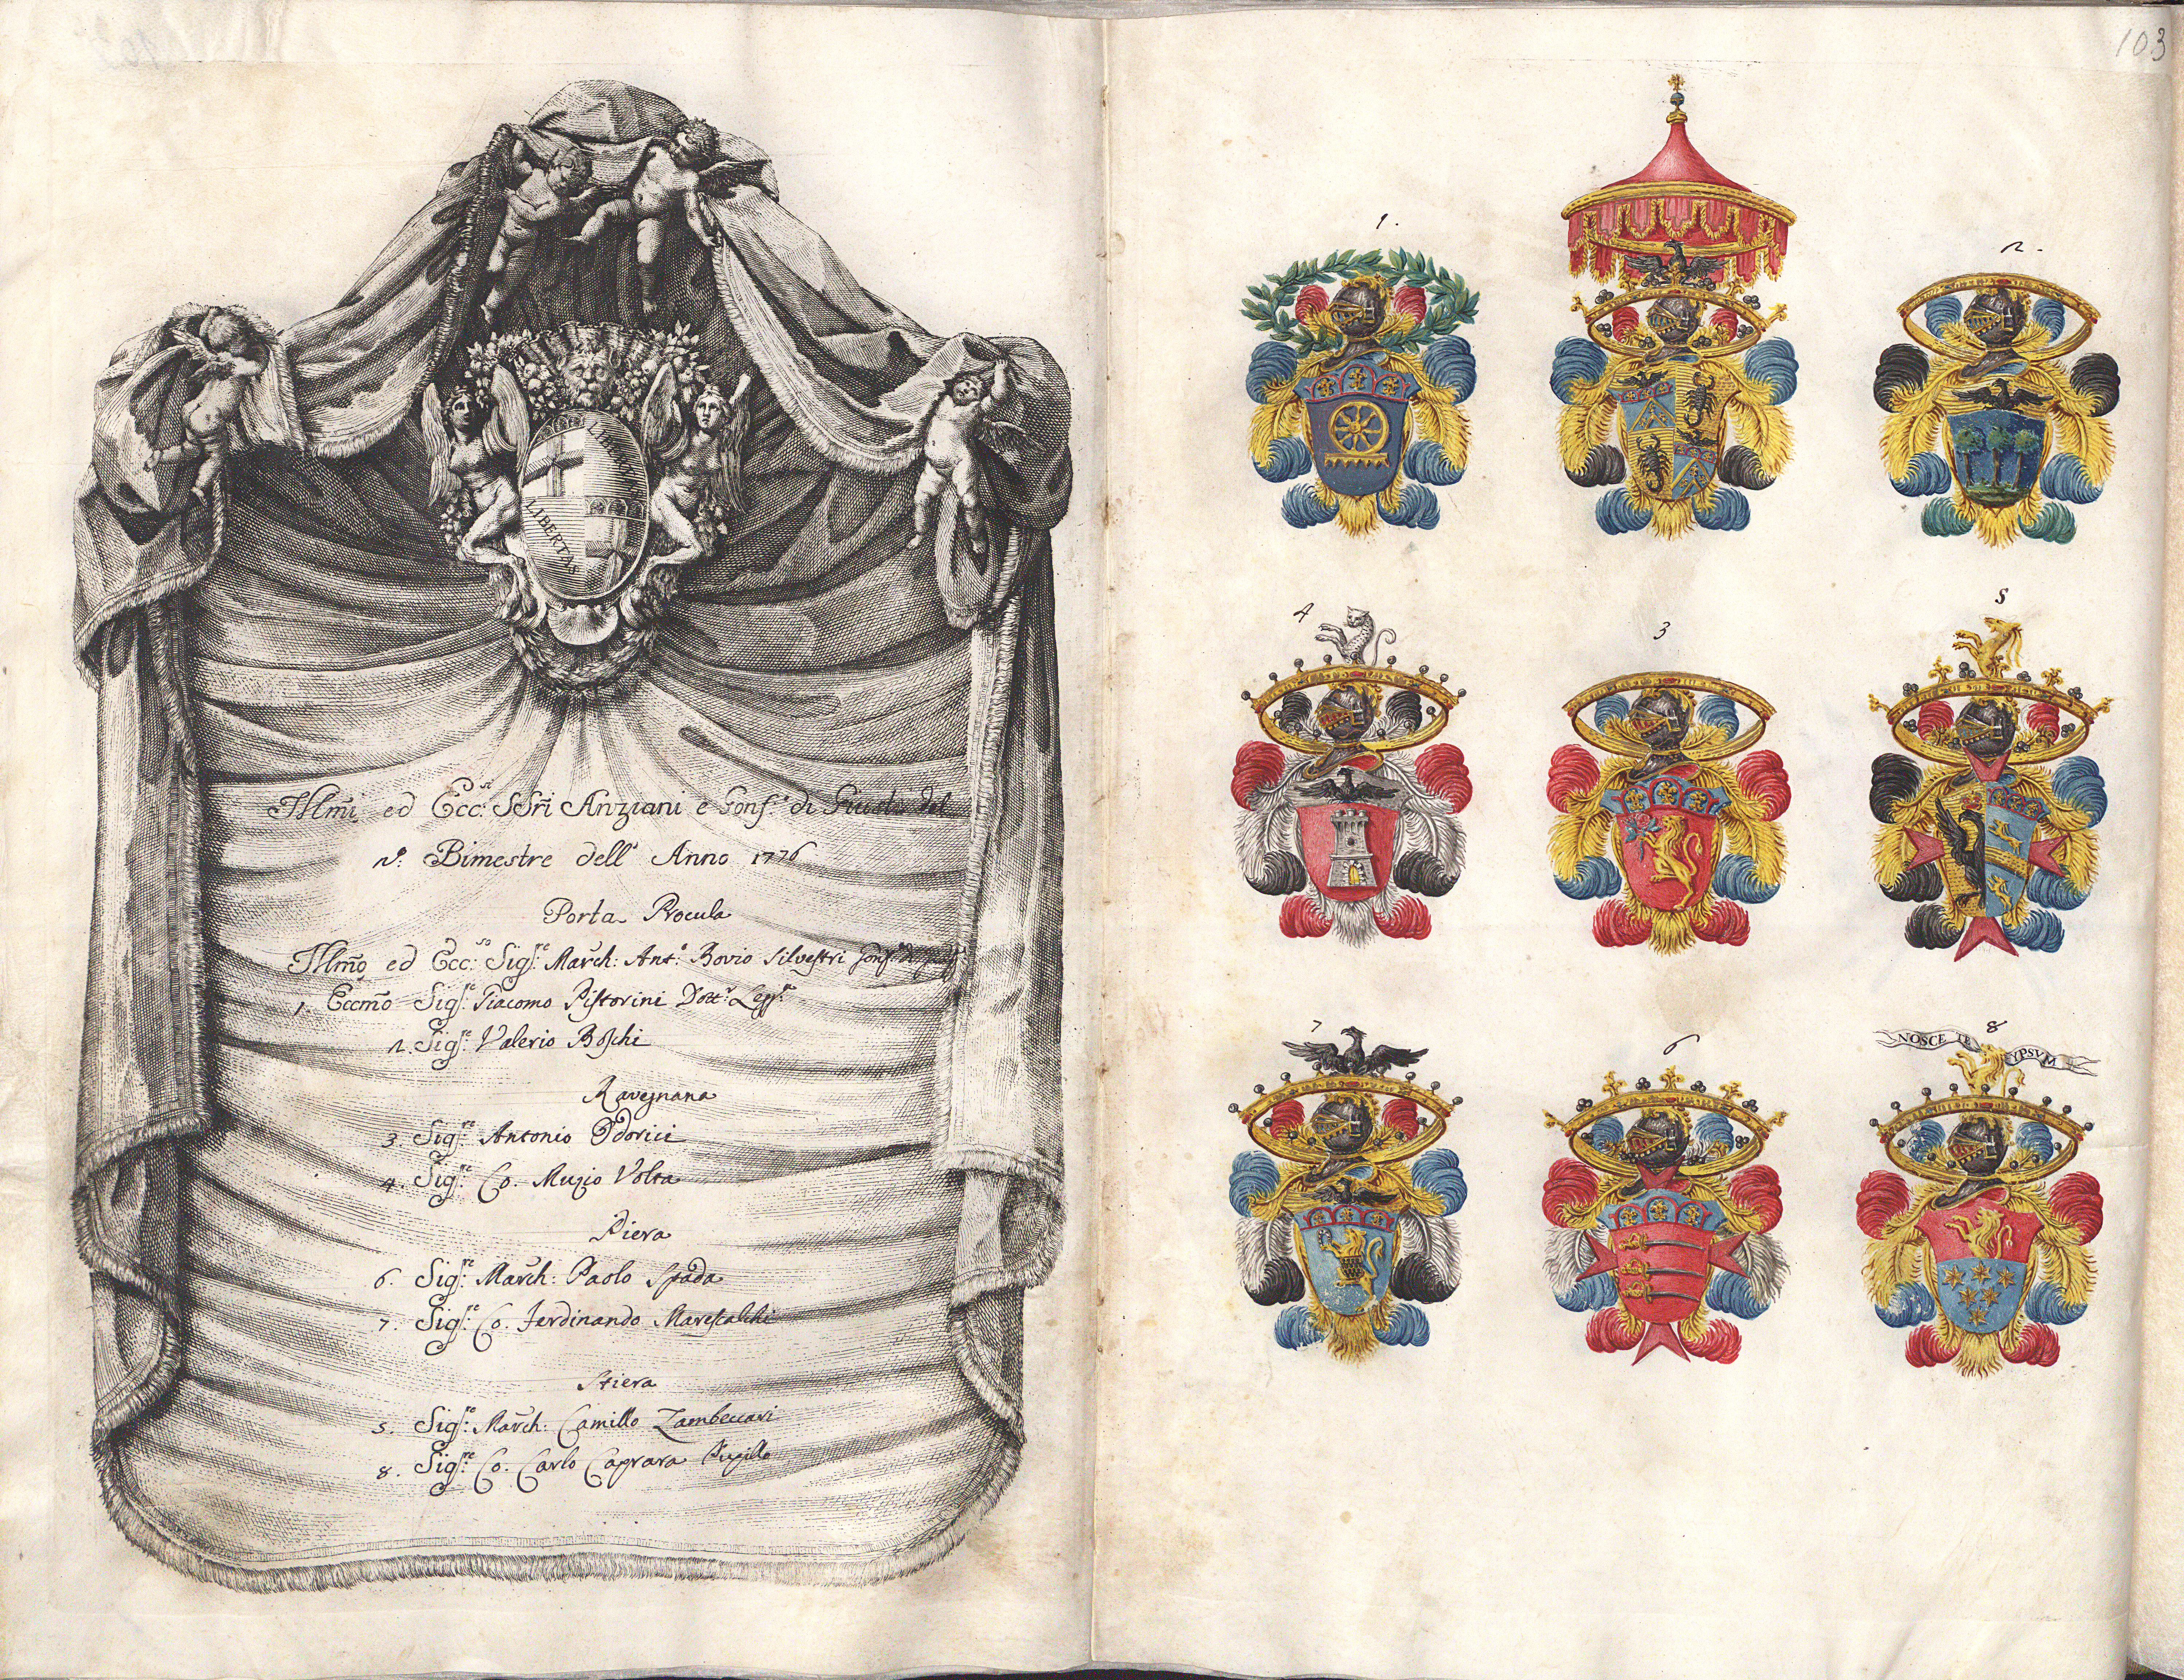 LIBERTAS
LIBERTAS
Illmi ed Ecc:si SSri Anziani e Gonf: di Giust: del
2º: Bimestre dell' Anno 1776
Porta Procula
Illmo ed Ecc:so Sig:re March: Ant: Bovio Silvestri Gonf:
1. Eccmo Sig:re Giacomo Pistorini Dott:r Legg:e
2. Sig:re Valerio Boschi
Ravegnana
3. Sig:re Antonio Odorici
4. Sig:re Co. Muzio Volta
Piera
6. Sig:re March: Paolo Spada
7. Sig:re Co. Ferdinando Marescalchi
Stiera
5. Sig:re March: Camillo Zambeccari
8. Sig:re Co. Carlo Caprara Pupillo
103
1.
2.
4
3
5
7
6
8
NOSCE TE YPSVM